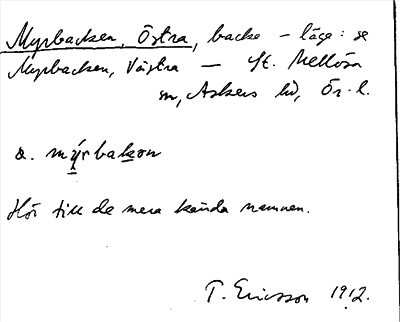 Myrbacken, Östra, backe – läge: se
Myrbacken, Västra — St. Mellösa
sn, Askers hd, Ör. l.
a. mýrbakon
Hör till de mera kända namnen.
T. Ericsson 1912.